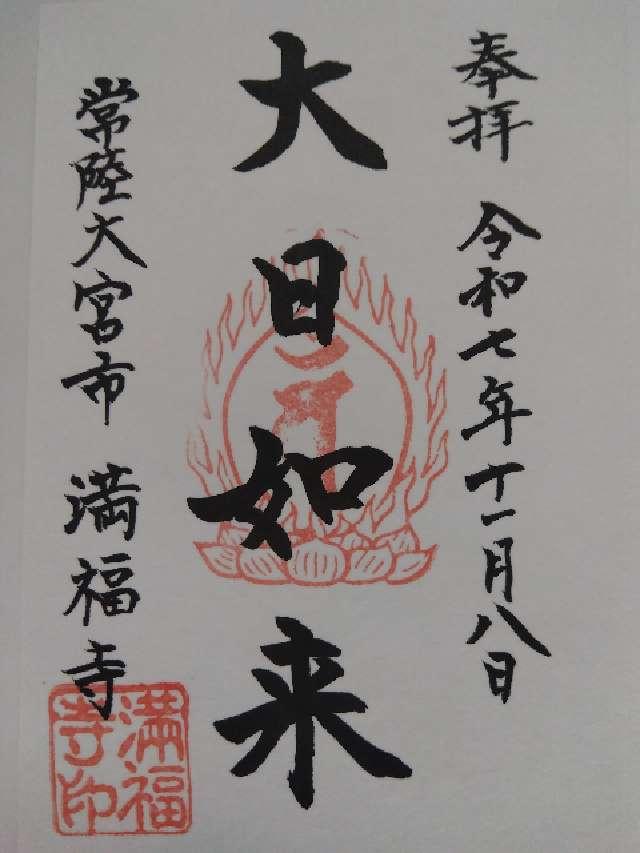 奉拝 令和七年十一月八日
大日如来
常陸大宮市 満福寺
満福
寺印